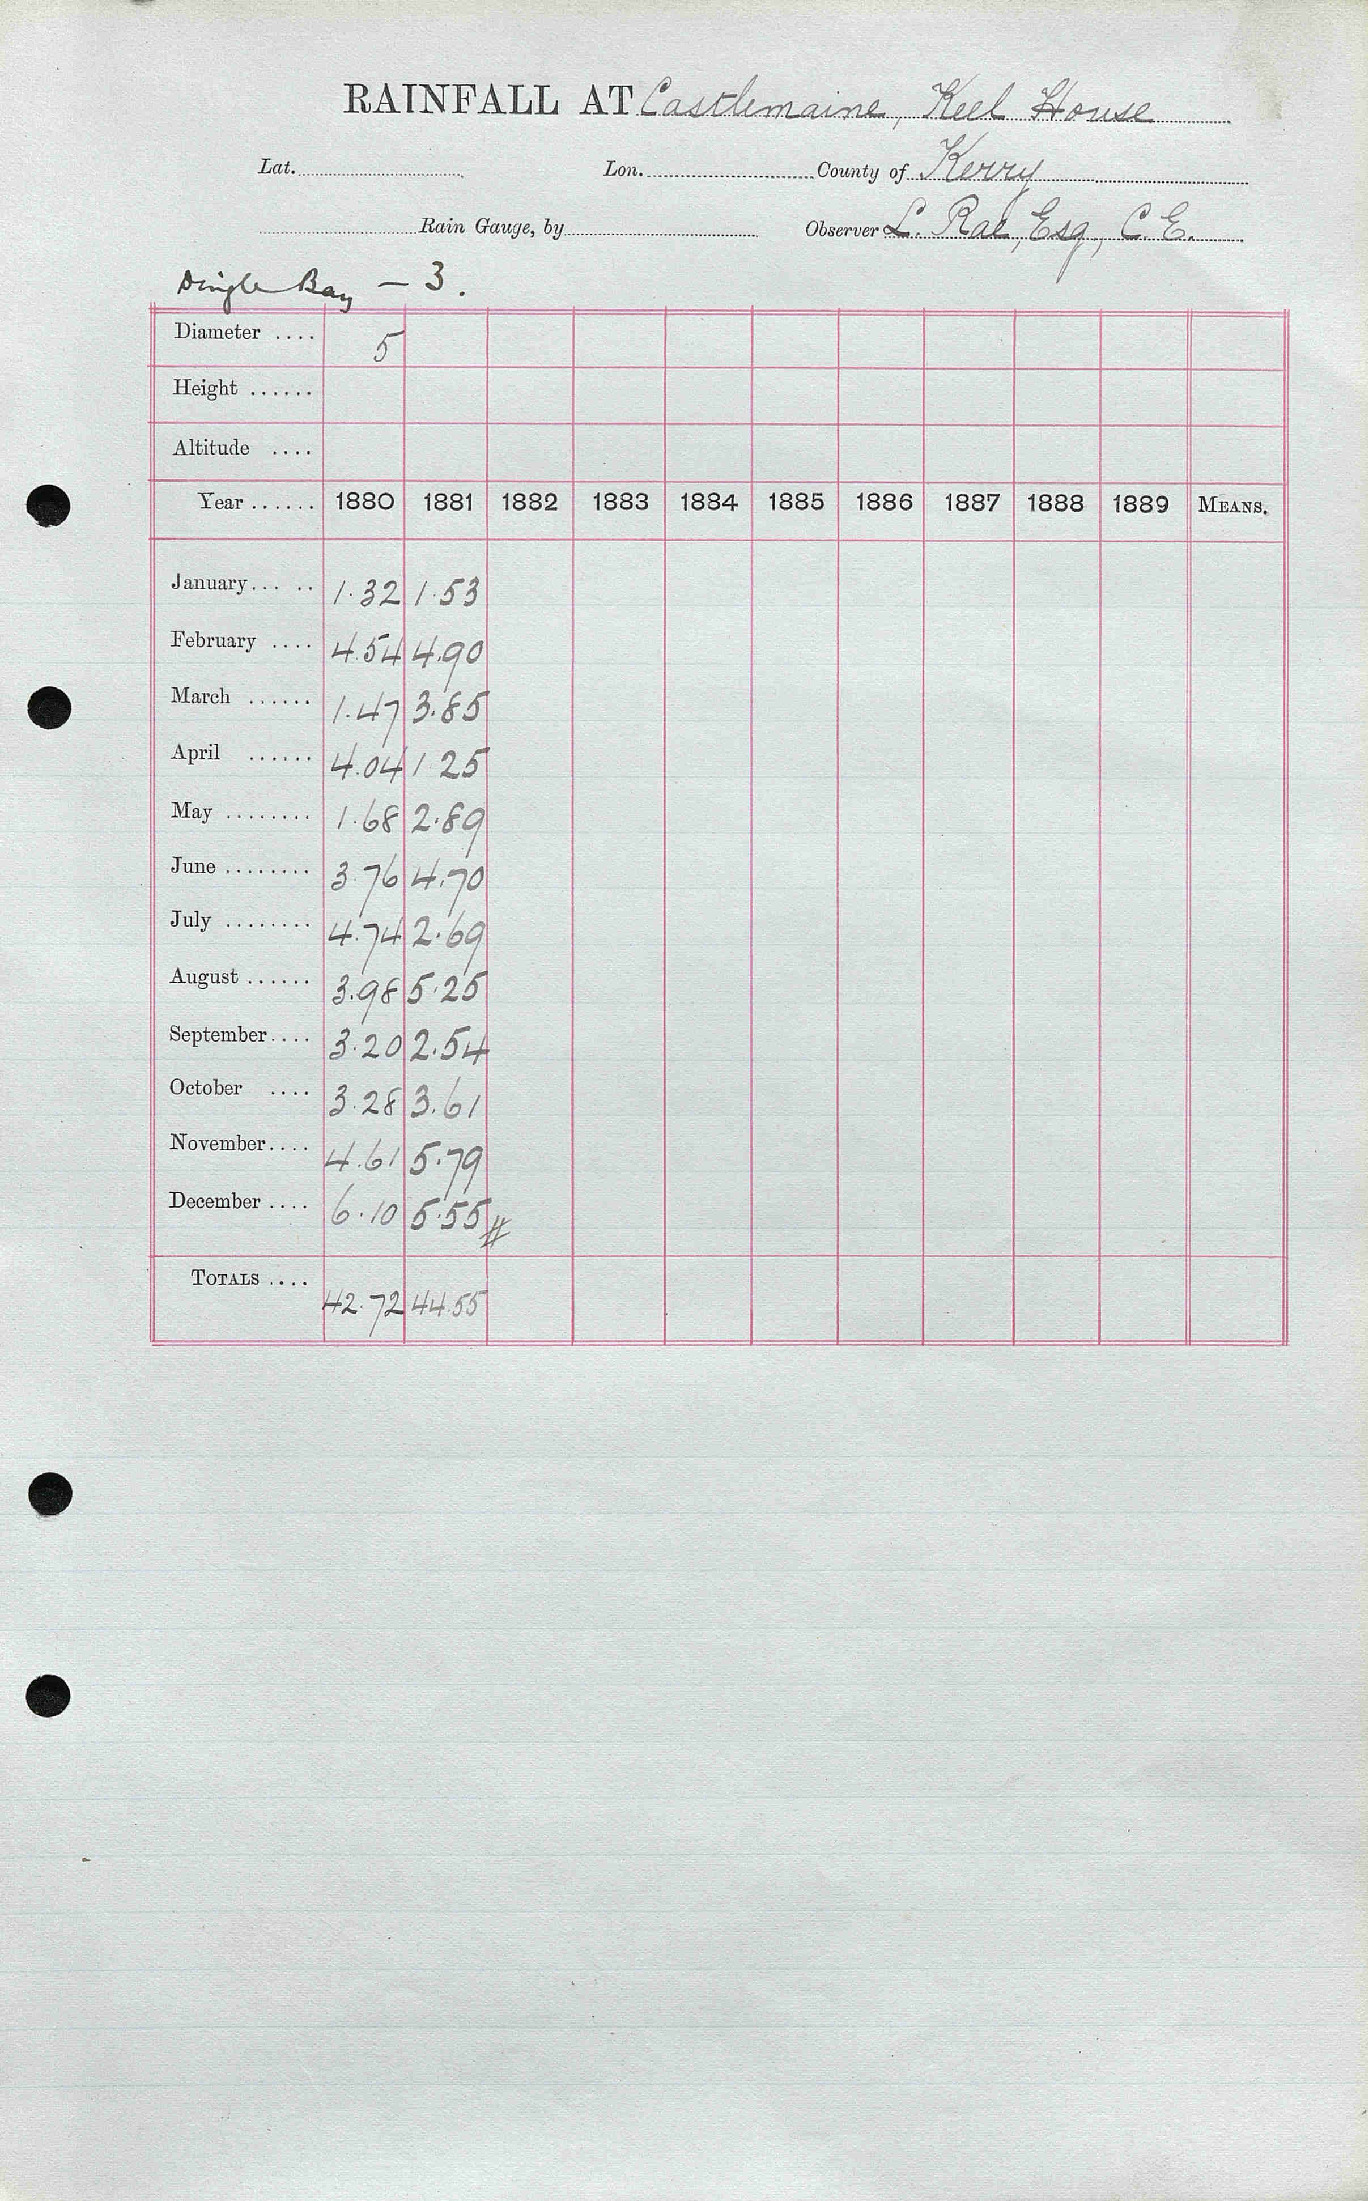 RAINFALL AT Castlemaine, Keel House
Lat. Lon. County of Kerry
Rain Gauge, by Observer L. Rae, Esq., C.E.
Dingle Bay — 3.
Diameter .... 5
Height ......
Altitude ....
Year ...... 1880 1881 1882 1883 1884 1885 1886 1887 1888 1889 MEANS.
January... .. 1.32 1.53
February .... 4.54 4.90
March ...... 1.47 3.85
April ...... 4.04 1 25
May ........ 1.68 2.89
June ........ 3.76 4.70
July ........ 4.74 2.69
August ...... 3.98 5.25
September.... 3.20 2.54
October .... 3.28 3.61
November.... 4.61 5.79
December .... 6.10 5.55 #
TOTALS .... 42.72 44.55